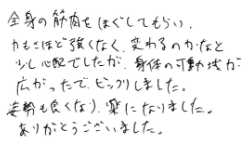 全身の筋肉をほぐしてもらい、
力もさほど強くなく、変わるのかなと
少し心配でしたが、身体の可動域が
広がったので、ビックリしました。
姿勢も良くなり、楽になりました。
ありがとうございました。